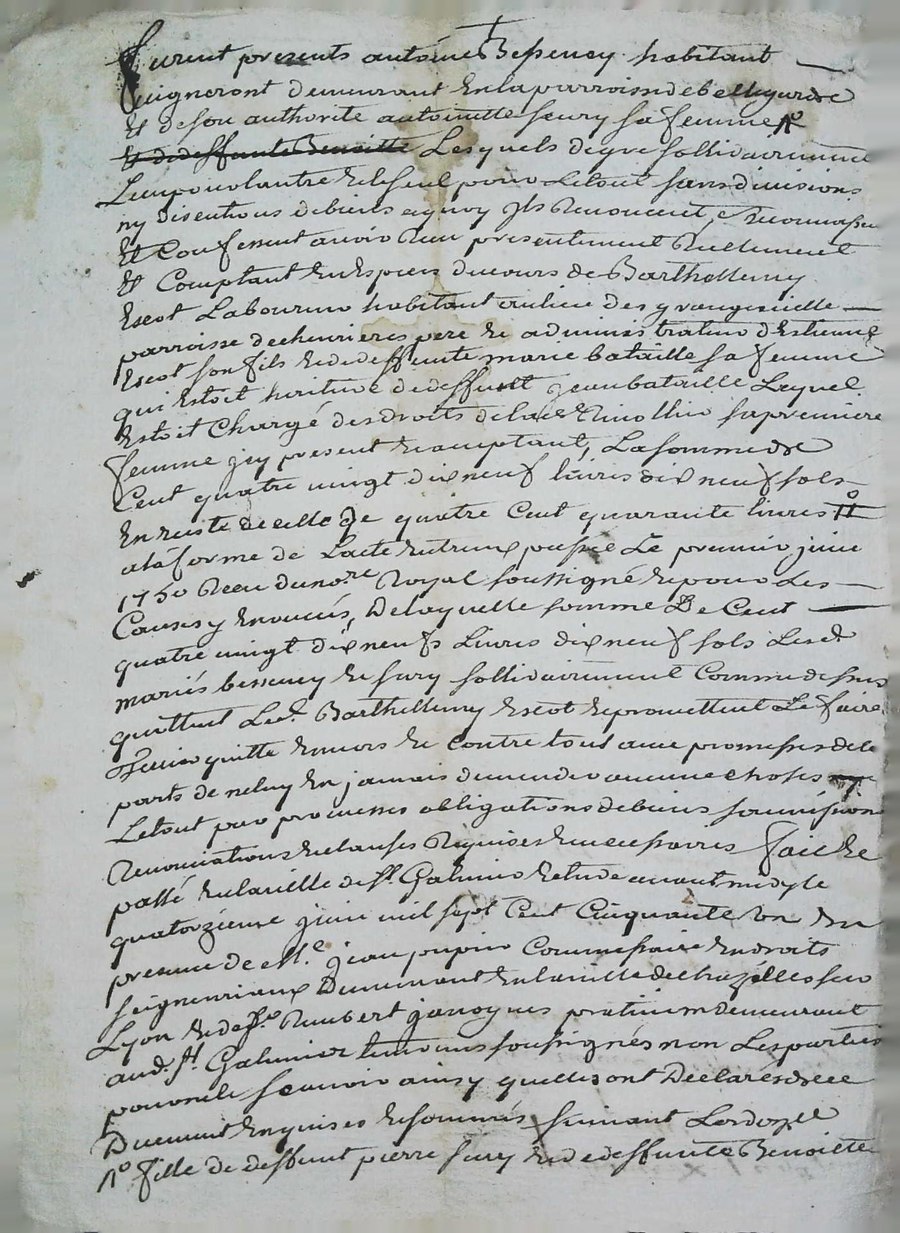 furent presents antoine Bessenay habitant
vigneront demeurant en la parroisse de bellegarde
Et de son authorité antoinette fury sa femme 1º
Et de deffunte Benoitte Lesquels de gre sollidairement
L'un pour lautre et le seul pour Le tout sans divisions
ny discutions de biens a quoy Ils Renoncent, Reconnoissent
Et Confessent avoir Reçu presentement Reellement
Et Comptant en Especes du cours de Barthellemy
Escot Laboureur habitant au lieu des granges
parroisse de chevrieres pere et administrateur d'Estienne
Escot son fils et de deffunte marie bataille sa femme
qui Estoit heritiere de deffunt jean bataille Lequel
Estoit Chargé des droits de sa premiere
femme icy present et acceptant, La somme de
Cent quatre vingt dix neuf livres dix neuf sols
En reste de celle de quatre Cent quarante livres
a la forme de Lacte entreux passé Le premier juin
1750 Recu du nore. Royal soussigné et pour Les
Causes y enoncés, De laquelle somme De Cent
quatre vingt dix neufs Livres dix neuf sols Lesd.
mariés bessenay et fury sollidairement Comme dessus
quittent Led. Barthellemy Escot et promettent Le faire
Tenir quitte envers et contre tous avec promesses de la
parts de ne luy En jamais demander aucune choses
Le tout par promesses obligations de biens soumission
Renonciations et clauses Requises fait et
passé en la ville de St. Galmier Etude avant midy le
quatorzieme juin mil sept Cent Cinquante un En
presence de Me. jean pupier Commissaire en droits
seigneuriaux Demeurant en la ville de chazelles sur
Lyon et de Rambert praticien demeurant
aud. St. Galmier temoins soussignés non Les parties
pour ne le scavoir ainsy quelles ont Declarés de ce
Duement Enquises et sommés suivant Lord.
1º fille de deffunt pierre fury et de deffunte Benoitte